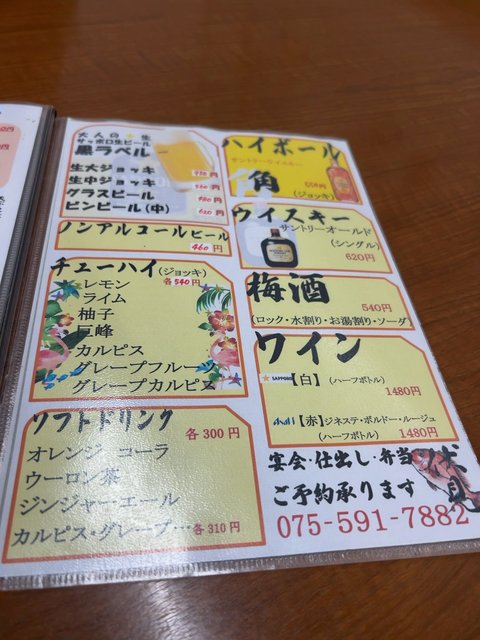 大人の★生
サッポロ生ビール
黒ラベル
生大ジョッキ 円
生中ジョッキ 円
グラスビール 円
ビンビール(中) 620円
ノンアルコールビール
460円
チューハイ(ジョッキ)
各540円
レモン
ライム
柚子
巨峰
カルピス
グレープフルーツ
グレープカルピス
ソフトドリンク
各300円
オレンジ コーラ
ウーロン茶
ジンジャー・エール
カルピス・グレープ…各310円
ハイボール
サントリーウイスキー
角
(ジョッキ)
円
ウイスキー
サントリーオールド
(シングル)
620円
梅酒
540円
(ロック・水割り・お湯割り・ソーダ)
ワイン
SAPPORO【白】(ハーフボトル)
1480円
Asahi【赤】ジネステ・ボルドー・ルージュ
(ハーフボトル) 1480円
宴会・仕出し・弁当
ご予約承ります
075-591-7882